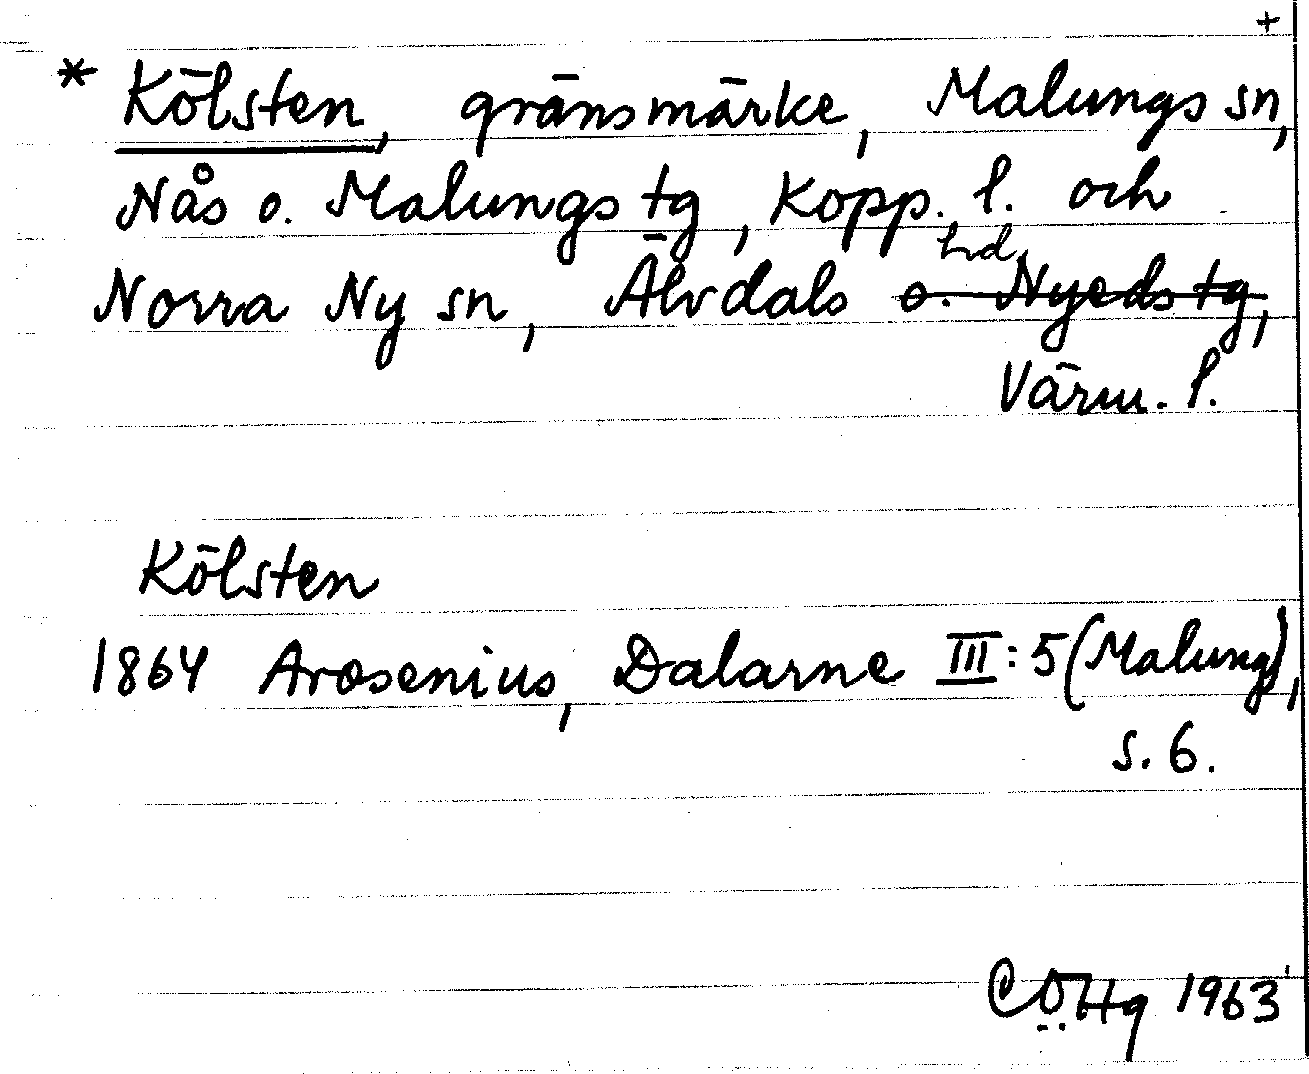 +
* Kölsten, gränsmärke, Malungs sn,
Nås o. Malungs tg, Kopp. l. och
Norra Ny sn, Älvdals hd o. Nyeds tg,
Värm. l.
Kölsten
1864 Arosenius, Dalarne III:5 (Malung),
s. 6.
1963